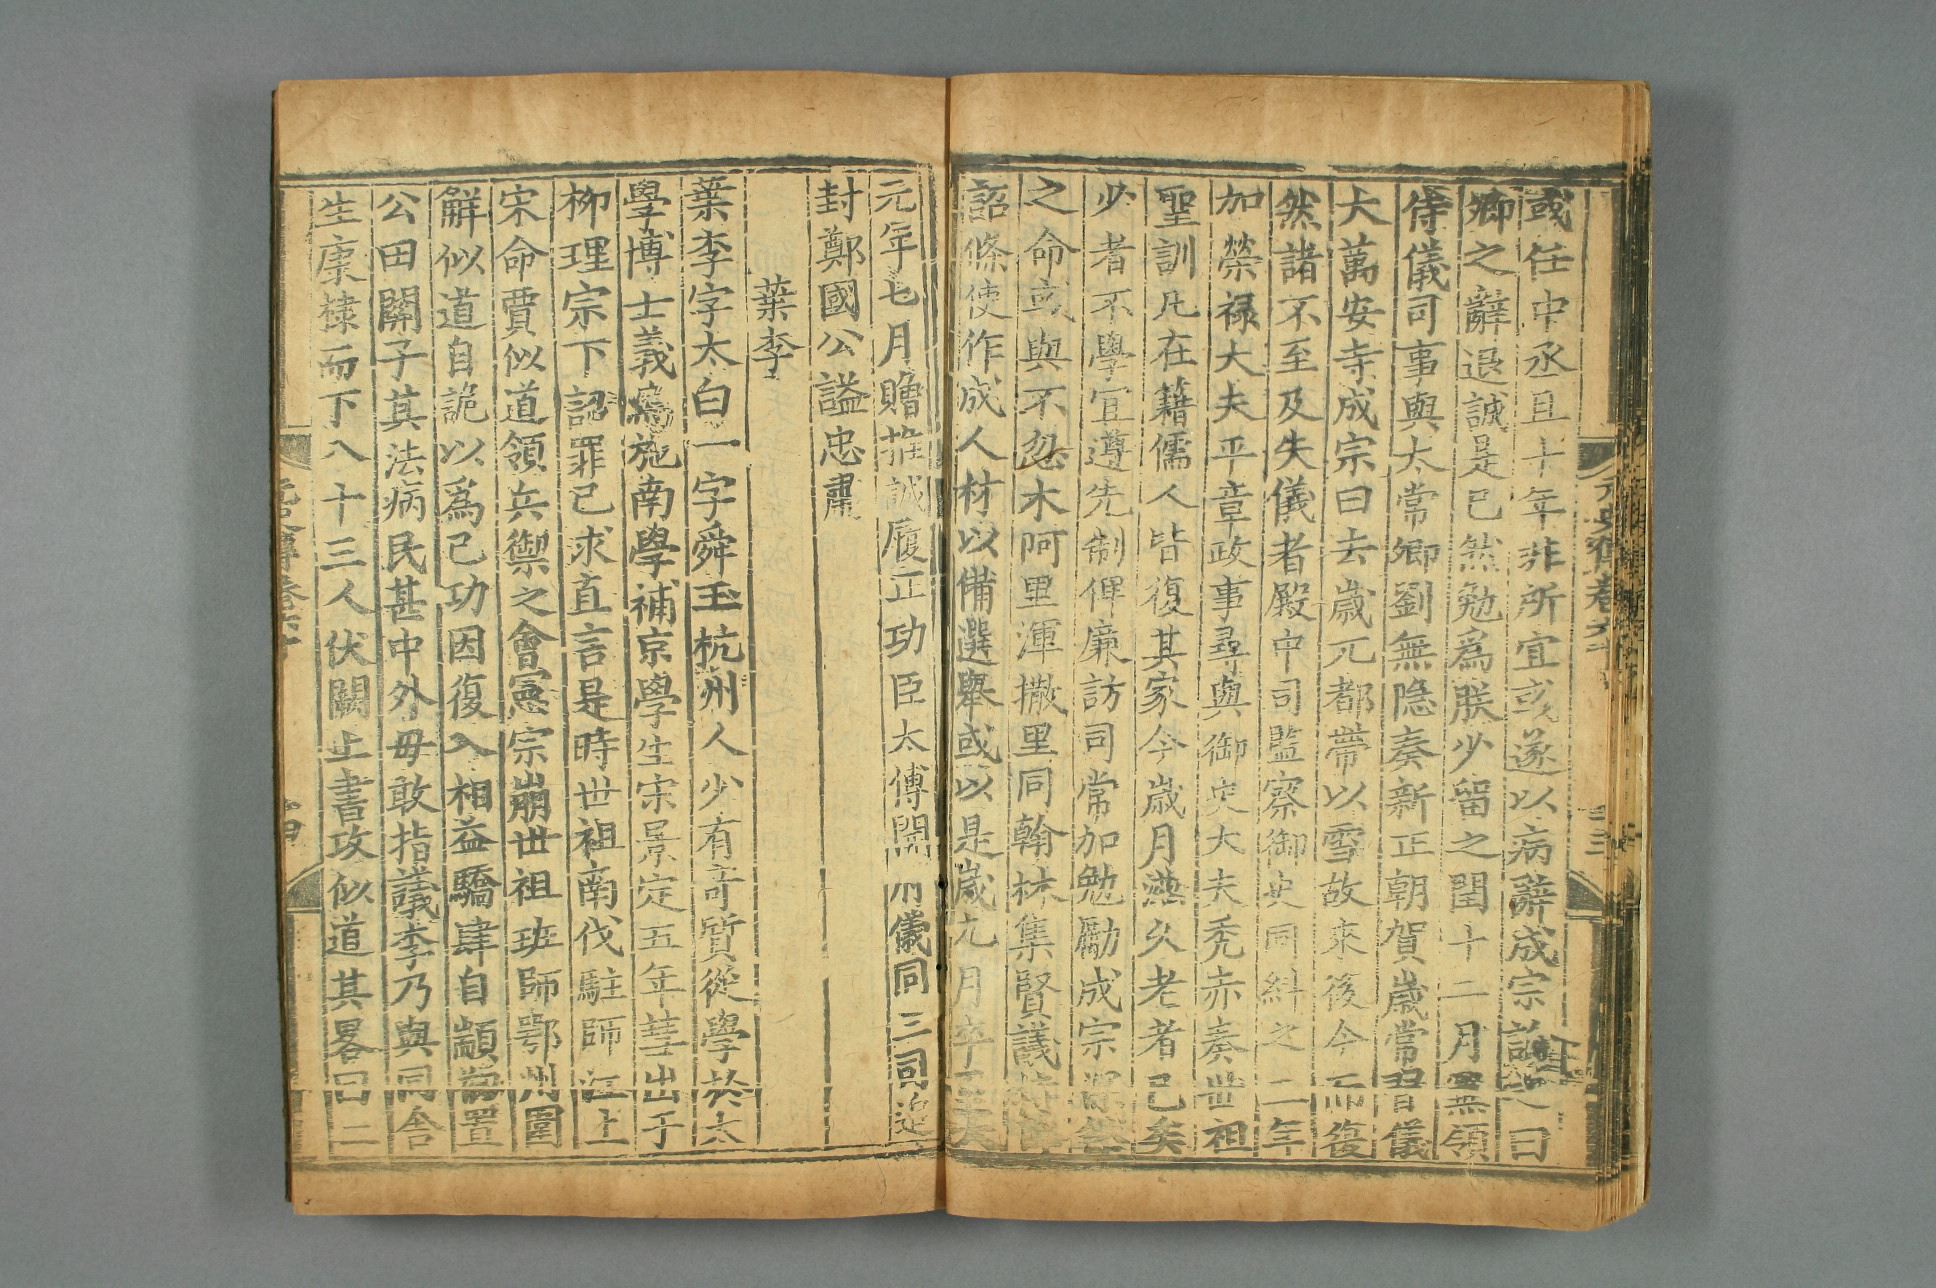 或任中丞且十年非所宜或遂以病辭成宗諭之曰
卿之辭退誠是已然勉爲朕少留之閏十二月兼領
侍儀司事與太常卿劉無隱奏新正朝賀歲常習儀
大萬安寺成宗曰去歲兀都帶以雪故來後今而復
然諸不至及失儀者殿中司監察御史同糾之二年
加榮祿大夫平章政事尋與御史大夫禿赤奏世祖
聖訓凡在籍儒人皆復其家今歲月滋久老者已矣
少者不學宜遵先制俾廉訪司常加勉勵成宗深然
之命或與不忽木阿里渾撒里同翰林集賢議
詔條使作成人材以備選舉或以是歲九月卒至大
元年七月贈推誠履正功臣太傅開府儀同三司追
封鄭國公謚忠肅
葉李
葉李字太白一字舜玉杭州人少有奇質從學於太
學博士義烏施南學補京學生宋景定五年彗出于
柳理宗下詔罪己求直言是時世祖南伐駐師江上
宋命賈似道領兵禦之會憲宗崩世祖班師鄂州圍
解似道自詭以爲己功因復入相益驕肆自顓創置
公田關子其法病民甚中外毋敢指議李乃與同舍
生康棣而下八十三人伏闕上書攻似道其畧曰二